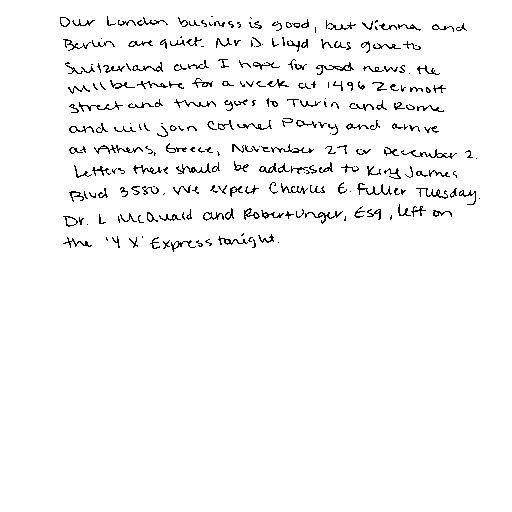 Our London business is good, but Vienna and
Berlin are quiet. Mr D. Lloyd has gone to
Switzerland and I hope for good news. He
will be there for a week at 1496 Zermott
street and then goes to Turin and Rome
and will join Colonel Parry and arrive
at Athens, Greece, November 27 or December 2.
Letters there should be addressed to King James
Blvd 3580. We expect Charles E. Fuller Tuesday.
Dr. L McQuaid and Robert Unger, Esq, left on
the 'Y X' Express tonight.